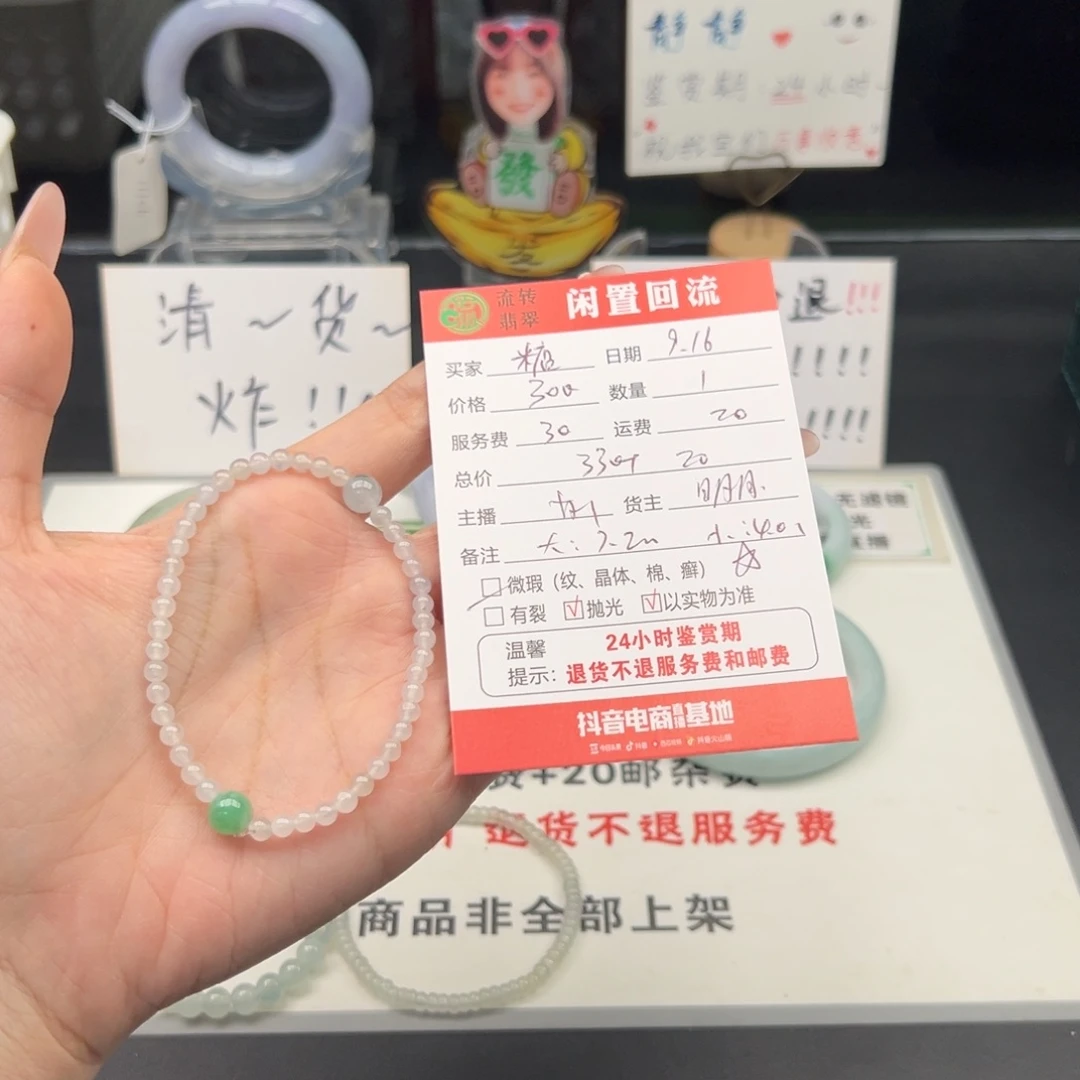 静 静
鉴赏期 24小时
發
清~货~
炸!!!
退!!!
!!!!
!!!!
流转
翡翠
闲置回流
买家 糖 日期 9.16
价格 300 数量 1
服务费 30 运费 20
总价 330+ 20
主播 货主 明月.
备注
微瑕 (纹、晶体、棉、癣)
有裂 抛光 以实物为准
温馨
提示:
24小时鉴赏期
退货不退服务费和邮费
抖音电商直播基地
无滤镜
光
直播
费+20邮杂费
退货不退服务费
商品非全部上架